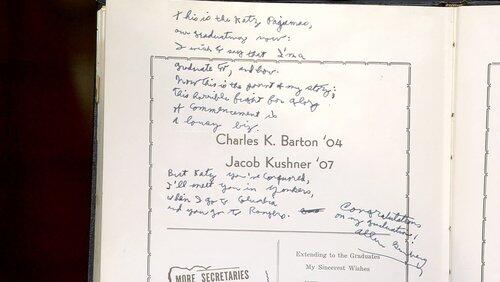 This is the Katz Pajamas,
our graduating now:
I wish to say that I'm a
graduate , and how.
Now this is the point of my story;
This horrible fight for glory
At Commencement is
a lousy biz.
Charles K. Barton '04
Jacob Kushner '07
But Katz you've conquered,
I'll meet you in Yonkers,
when I go to Columbia
and you go to Rutgers.
Congratulations
on my graduation!
Allen Ginsberg
MORE SECRETARIES
Extending to the Graduates
My Sincerest Wishes